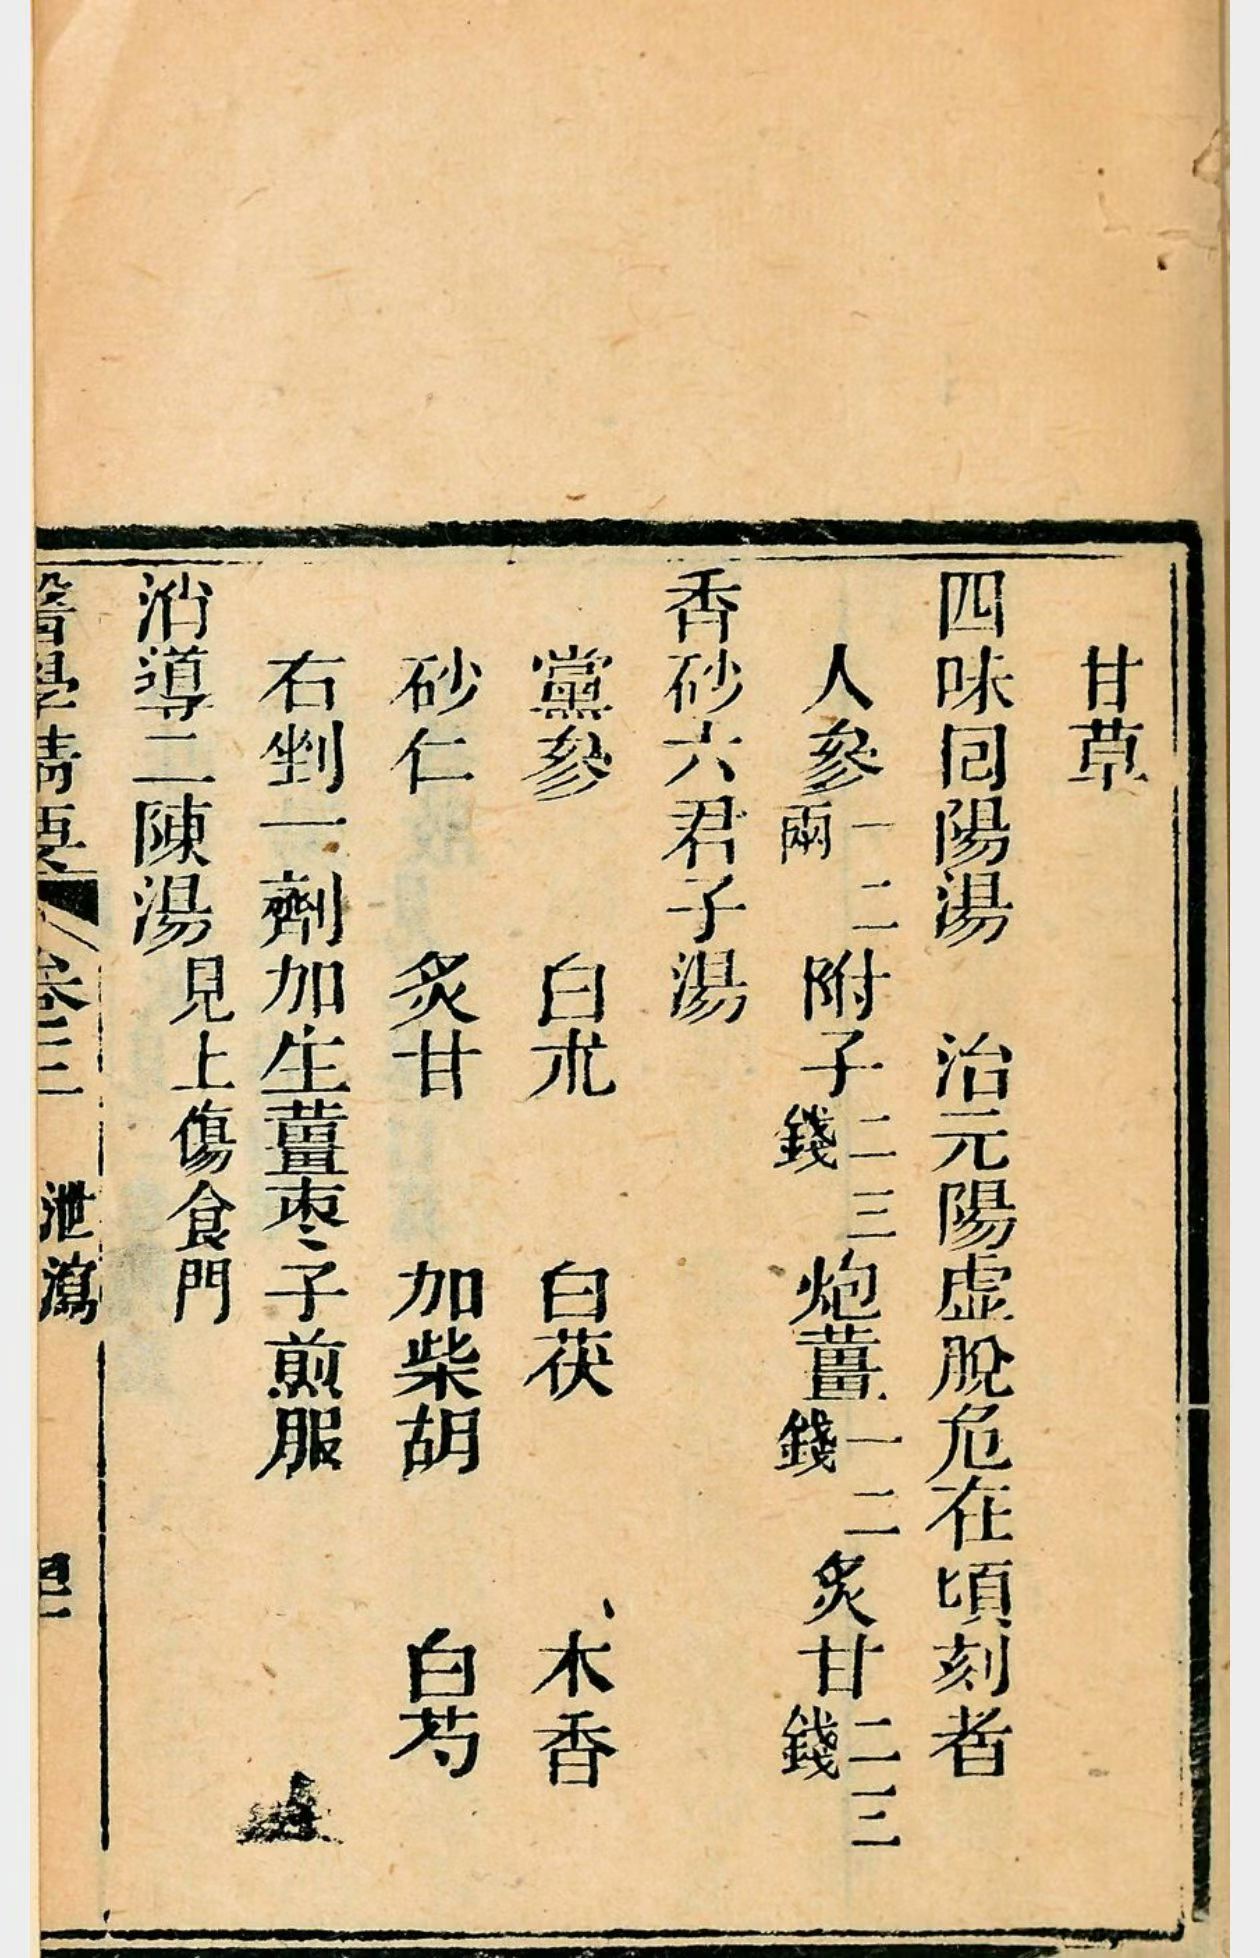 甘草
四味回陽湯　治元陽虛脫危在頃刻者
人參一二兩附子二三錢炮薑一二錢炙甘二三錢
香砂六君子湯
黨參　白朮　白茯　木香
砂仁　炙甘　加柴胡　白芍
右剉一劑加生薑枣子煎服
消導二陳湯見上傷食門
醫學精要　卷三　泄瀉